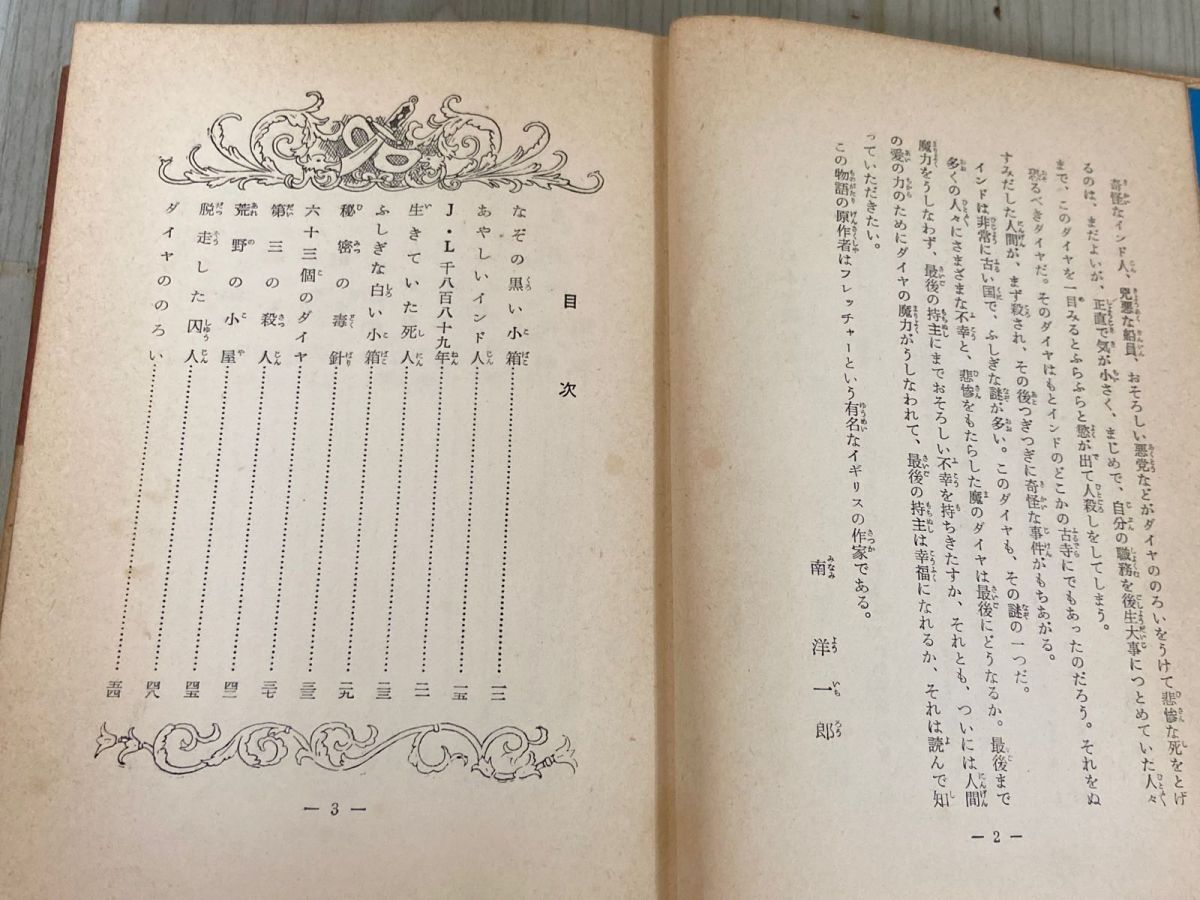 奇怪なインド人、兇悪な船員、おそろしい悪党などがダイヤののろいをうけて悲惨な死をとげ
るのは、まだよいが、正直で気が小さく、まじめで、自分の職務を後生大事につとめていた人々
まで、このダイヤを一目みるとふらふらと慾が出て人殺しをしてしまう。
恐るべきダイヤだ。そのダイヤはもとインドのどこかの古寺にでもあったのだろう。それをぬ
すみだした人間が、まず殺され、その後つぎつぎに奇怪な事件がもちあがる。
インドは非常に古い国で、ふしぎな謎が多い。このダイヤも、その謎の一つだ。
多くの人々にさまざまな不幸と、悲惨をもたらした魔のダイヤは最後にどうなるか。最後まで
魔力をうしなわず、最後の持主にまでおそろしい不幸を持ちきたすか、それとも、ついには人間
の愛の力のためにダイヤの魔力がうしなわれて、最後の持主は幸福になれるか、それは読んで知
っていただきたい。
この物語の原作者はフレッチャーという有名なイギリスの作家である。
南洋一郎
— 2 —
目次
なぞの黒い小箱……一二
あやしいインド人……一五
J・L千八百八十九年……二一
生きていた死人……二三
ふしぎな白い小箱……二九
秘密の毒針……三三
六十三個のダイヤ……三七
第三の殺人……四二
荒野の小屋……四五
脱走した囚人……四八
ダイヤののろい……五四
— 3 —